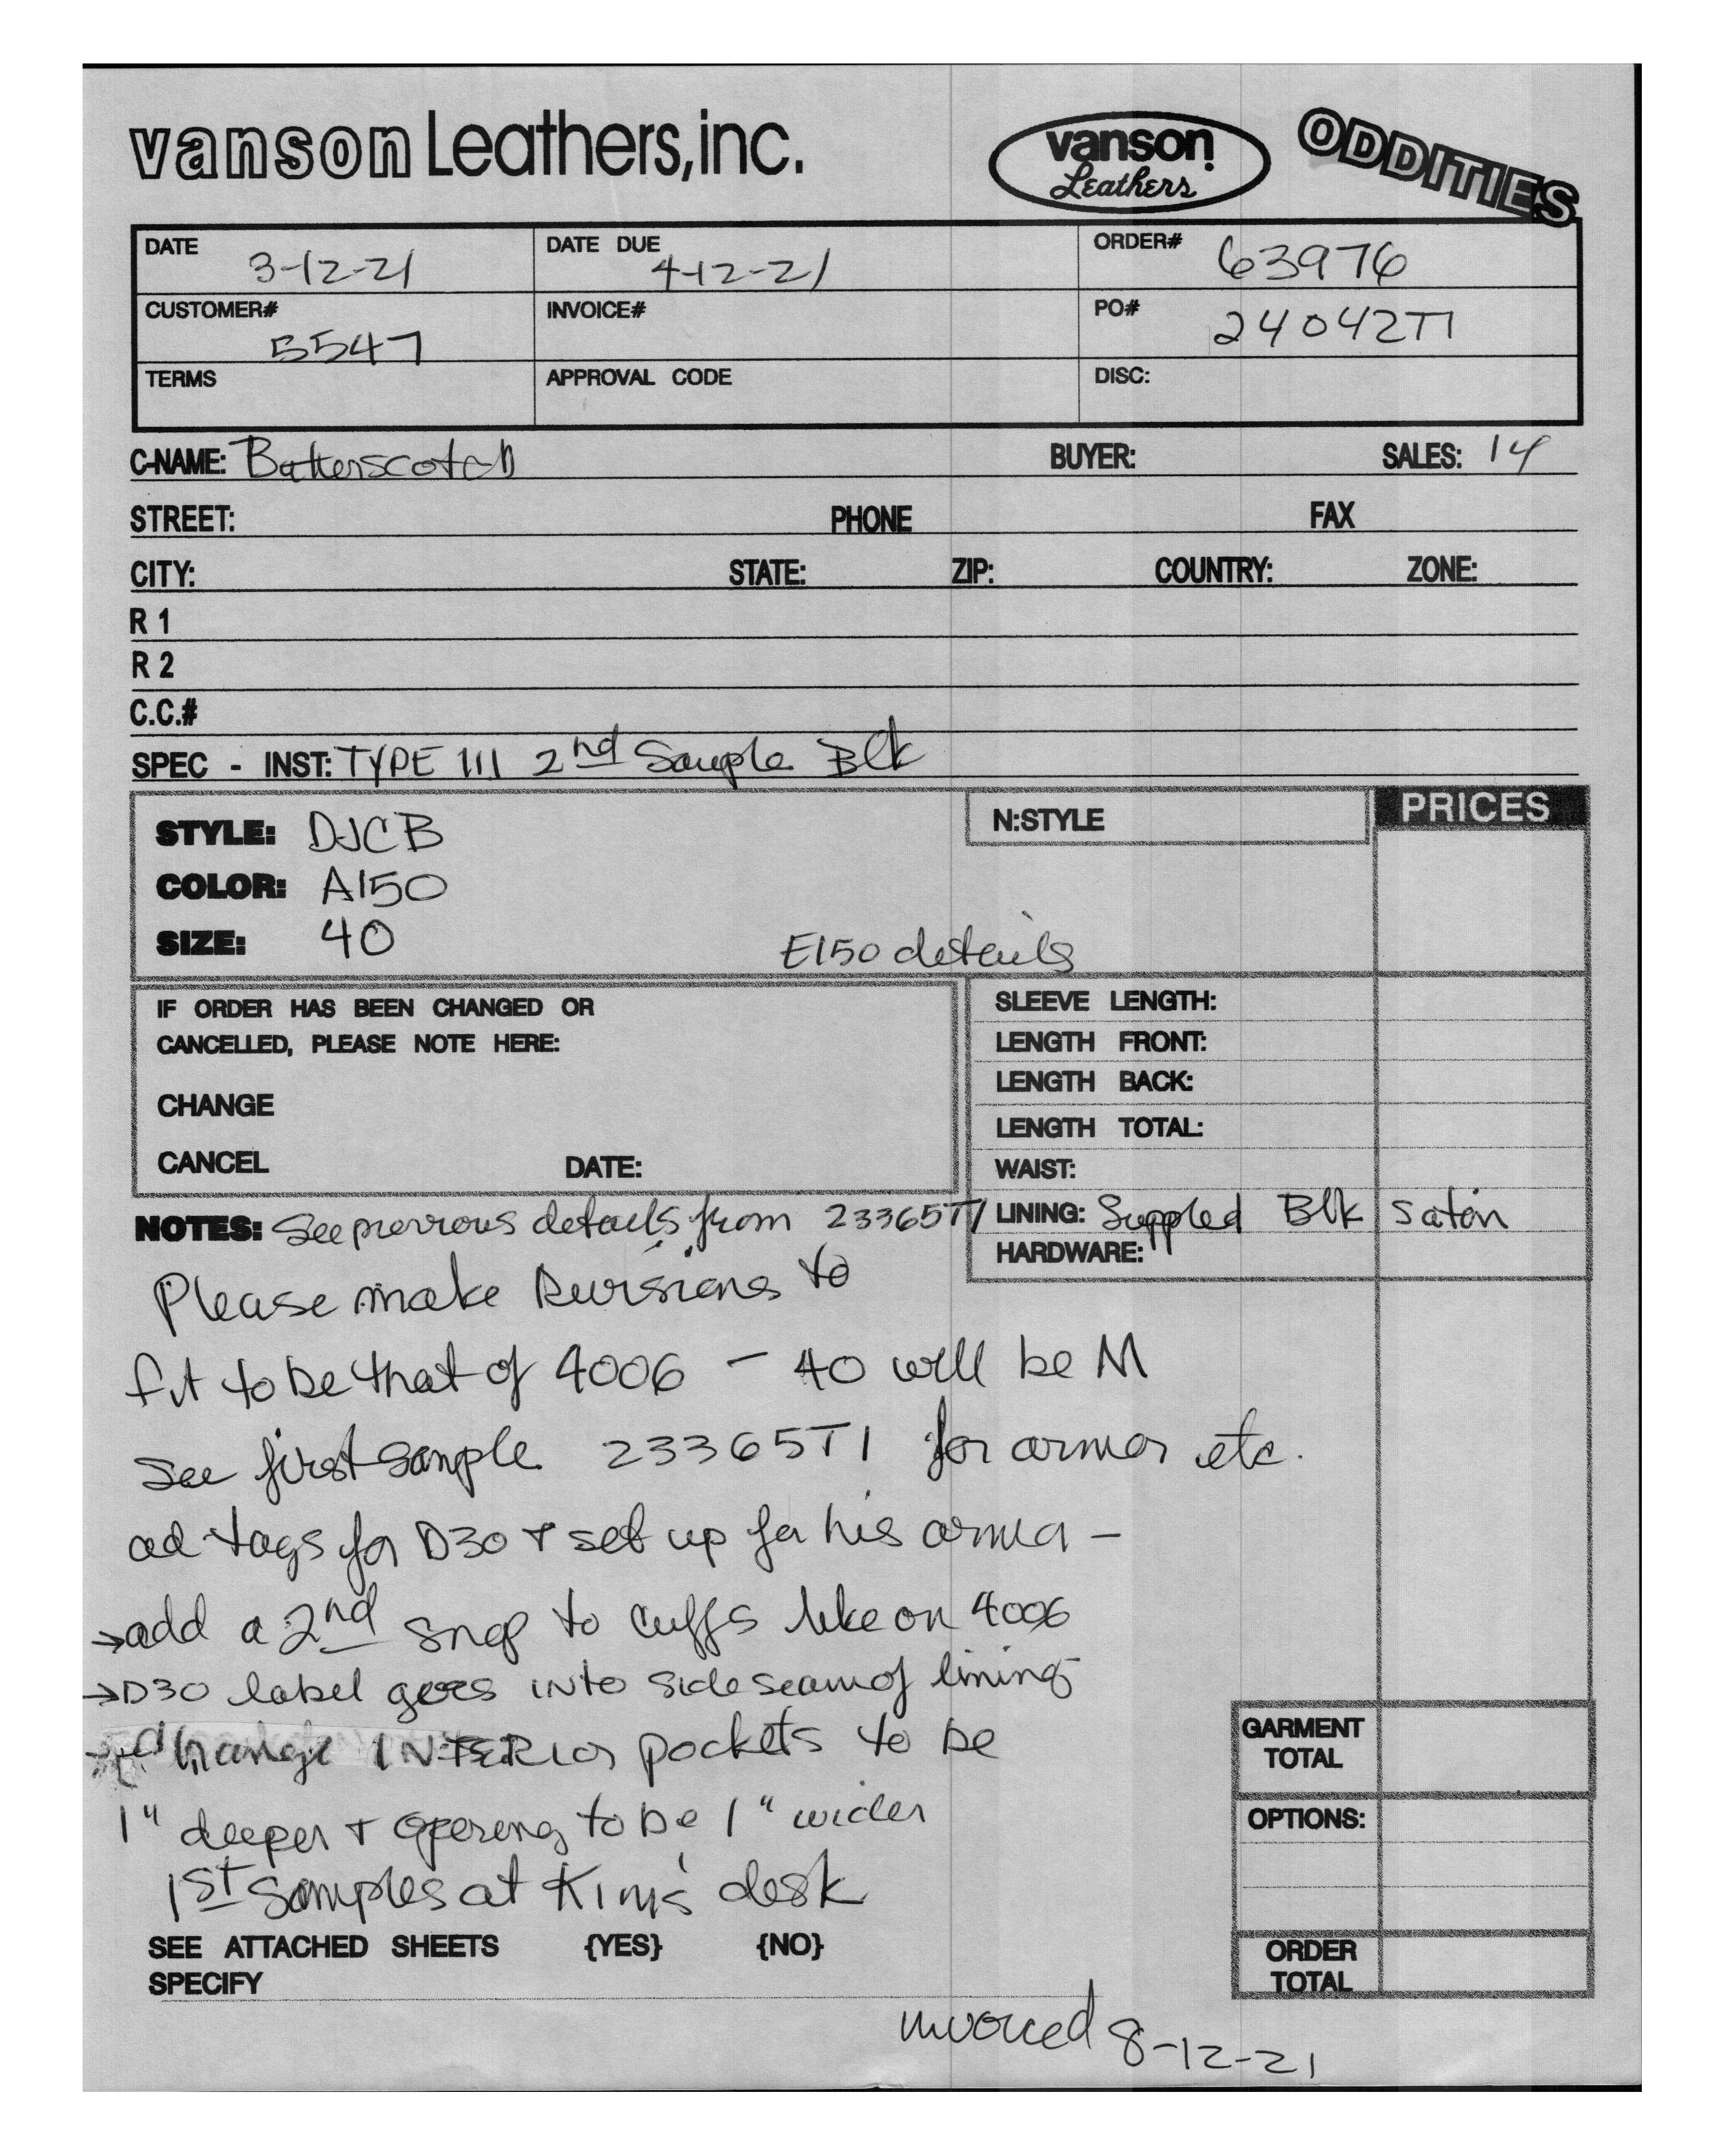 vanson Leathers, inc.
vanson Leathers
ODDITIES
DATE 3-12-21 DATE DUE 4-12-21 ORDER# 63976
CUSTOMER# 5547 INVOICE# PO# 24042T1
TERMS APPROVAL CODE DISC:
C-NAME: Butterscotch BUYER: SALES: 14
STREET: PHONE FAX
CITY: STATE: ZIP: COUNTRY: ZONE:
R 1
R 2
C.C.#
SPEC - INST: TYPE III 2nd Sample Blk
STYLE: DJCB N:STYLE PRICES
COLOR: A150
SIZE: 40 E150 details
IF ORDER HAS BEEN CHANGED OR
CANCELLED, PLEASE NOTE HERE:
CHANGE
CANCEL DATE:
SLEEVE LENGTH:
LENGTH FRONT:
LENGTH BACK:
LENGTH TOTAL:
WAIST:
LINING: Suppled Blk Satin
HARDWARE:
NOTES: See previous details from 23365T1
Please make Revisions to
fit to be that of 4006 - 40 will be M
See first sample 23365T1 for armor etc.
ad tags for D30 + set up for his armor -
→add a 2nd snap to cuffs like on 4006
→D30 label goes into side seam of lining
→change INTERIor pockets to be
1" deeper + opening to be 1" wider
1st samples at Kim's desk
SEE ATTACHED SHEETS {YES} {NO}
SPECIFY
GARMENT TOTAL
OPTIONS:
ORDER TOTAL
invoiced 8-12-21